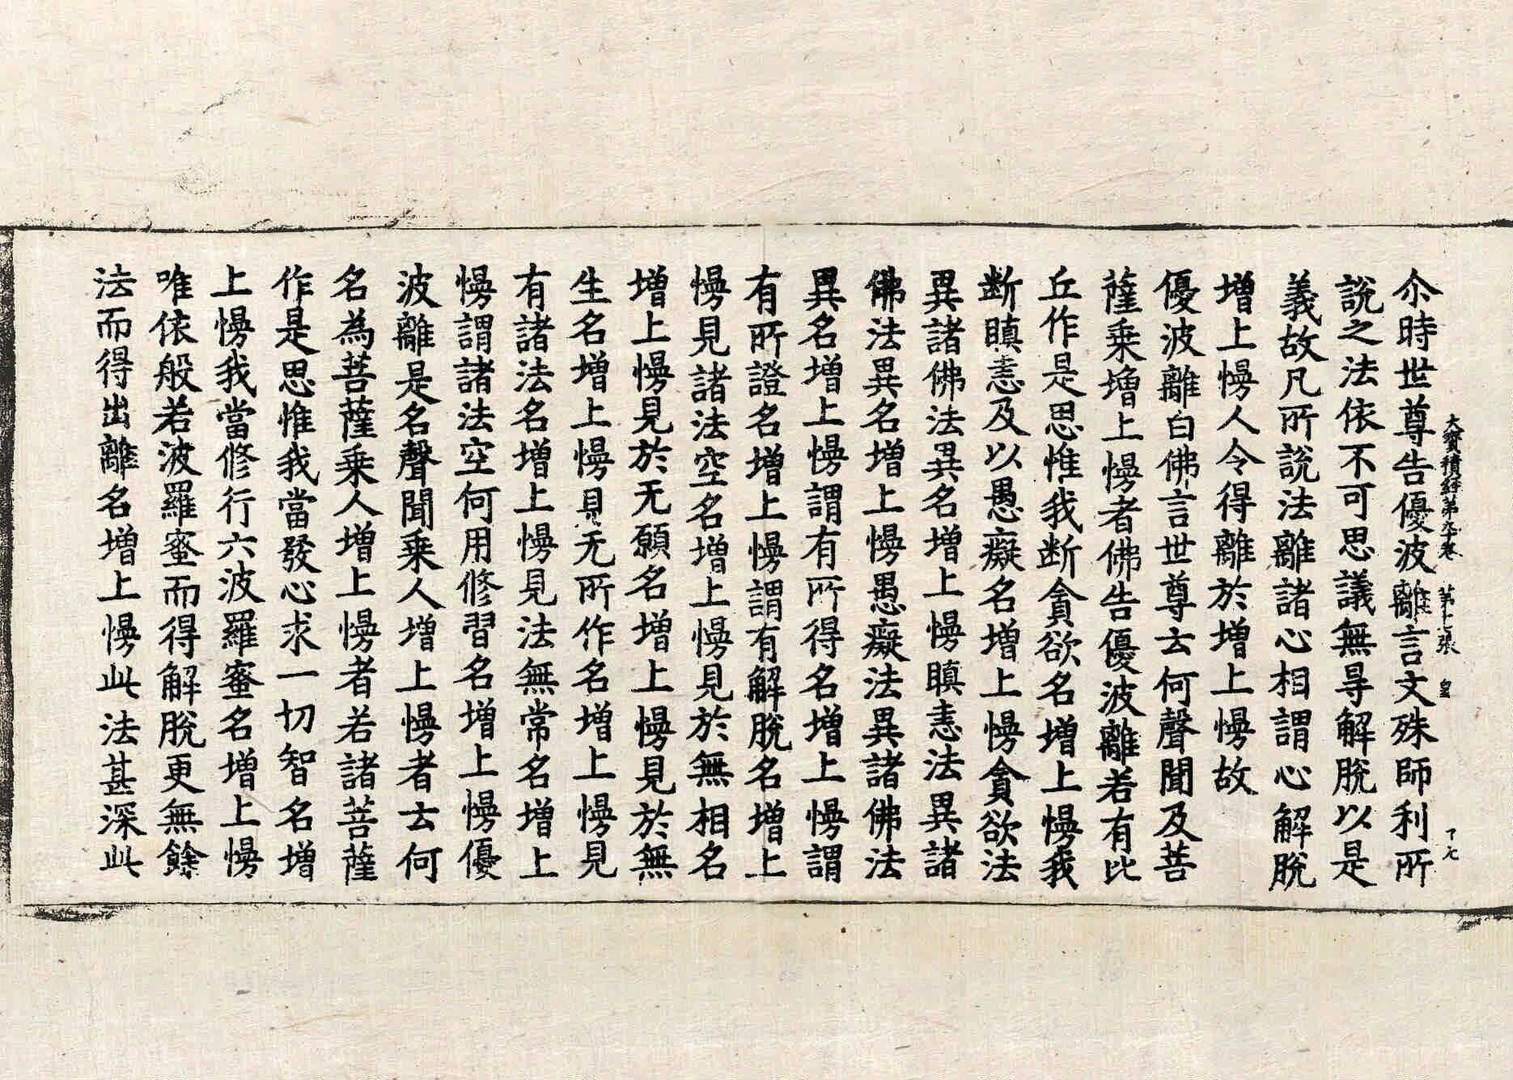 大寶積經第九十卷 第十七張 皇
尒時世尊告優波離言文殊師利所
説之法依不可思議無㝵解脫以是
義故凡所説法離諸心相謂心解脫
增上慢人令得離於增上慢故
優波離白佛言世尊云何聲聞及菩
薩乘增上慢者佛告優波離若有比
丘作是思惟我断貪欲名增上慢我
断瞋恚及以愚癡名增上慢貪欲法
異諸佛法異名增上慢瞋恚法異諸
佛法異名增上慢愚癡法異諸佛法
異名增上慢謂有所得名增上慢謂
有所證名增上慢謂有解脫名增上
慢見諸法空名增上慢見於無相名
增上慢見於无願名增上慢見於無
生名增上慢見无所作名增上慢見
有諸法名增上慢見法無常名增上
慢謂諸法空何用修習名增上慢優
波離是名聲聞乘人增上慢者云何
名為菩薩乘人增上慢者若諸菩薩
作是思惟我當發心求一切智名增
上慢我當修行六波羅蜜名增上慢
唯依般若波羅蜜而得解脫更無餘
法而得出離名增上慢此法甚深此